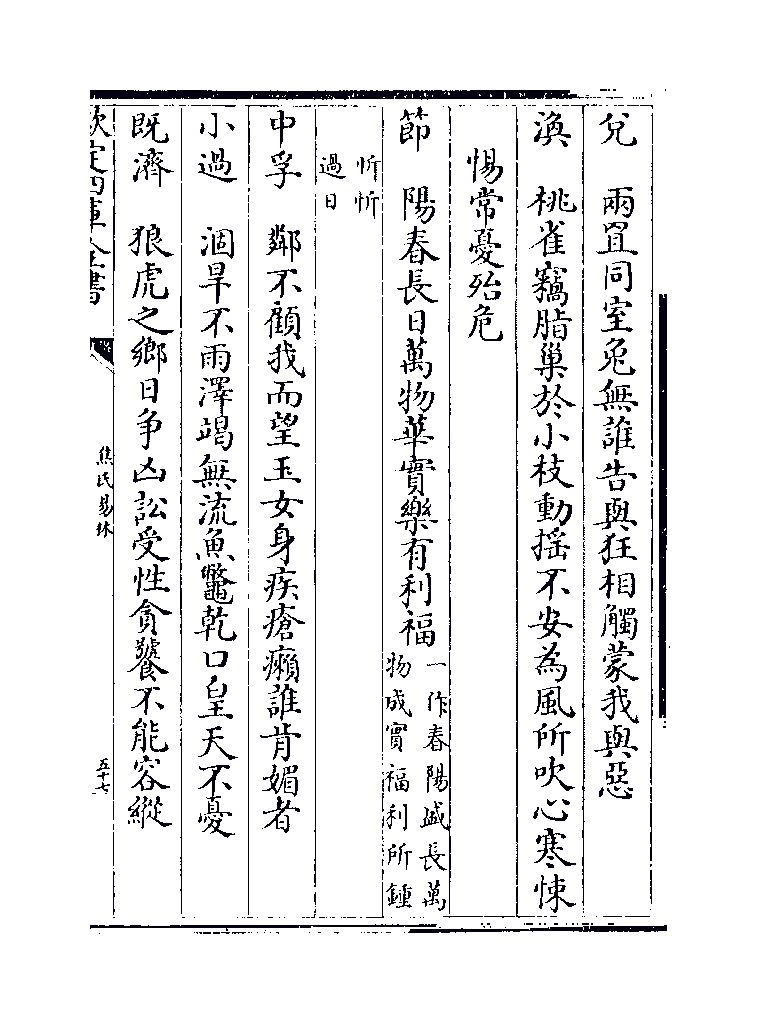 兌　兩罝同室兔無誰告與狂相觸蒙我與惡
渙　桃雀竊脂巢於小枝動揺不安為風所吹心寒悚
惕常憂殆危
節　陽春長日萬物華實樂有利福
一作春陽盛長萬
物成實福利所鍾
忻忻
過日
中孚　鄰不顧我而望玉女身疾瘡癩誰肯媚者
小過　涸旱不雨澤竭無流魚鼈乾口皇天不憂
既濟　狼虎之鄉日争凶訟受性貪饕不能容縱
欽定四庫全書
焦氏易林
五十七